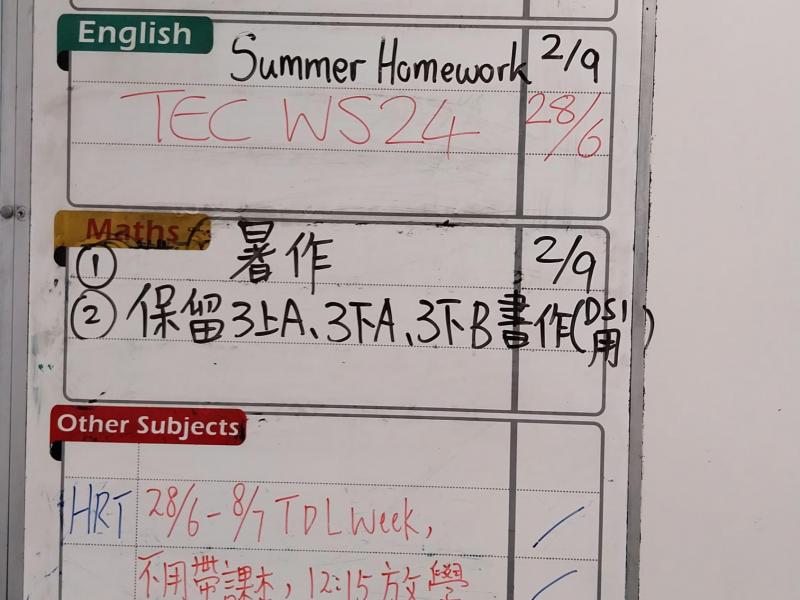 English
Summer Homework 2/9
TEC WS24 28/6
Maths
① 暑作 2/9
② 保留3上A、3下A、3下B書作(DSI用)
Other Subjects
HRT 28/6-8/7 TDL Week,
不用帶課本，12:15放學